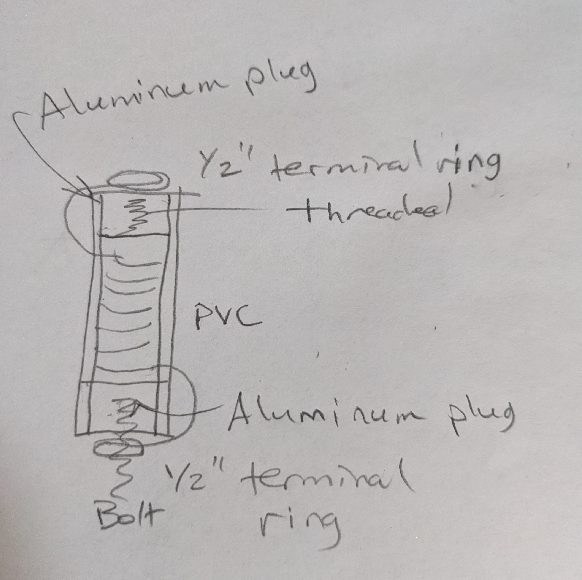 Aluminum plug
1/2" terminal ring
threaded
PVC
Aluminum plug
1/2" terminal
ring
Bolt